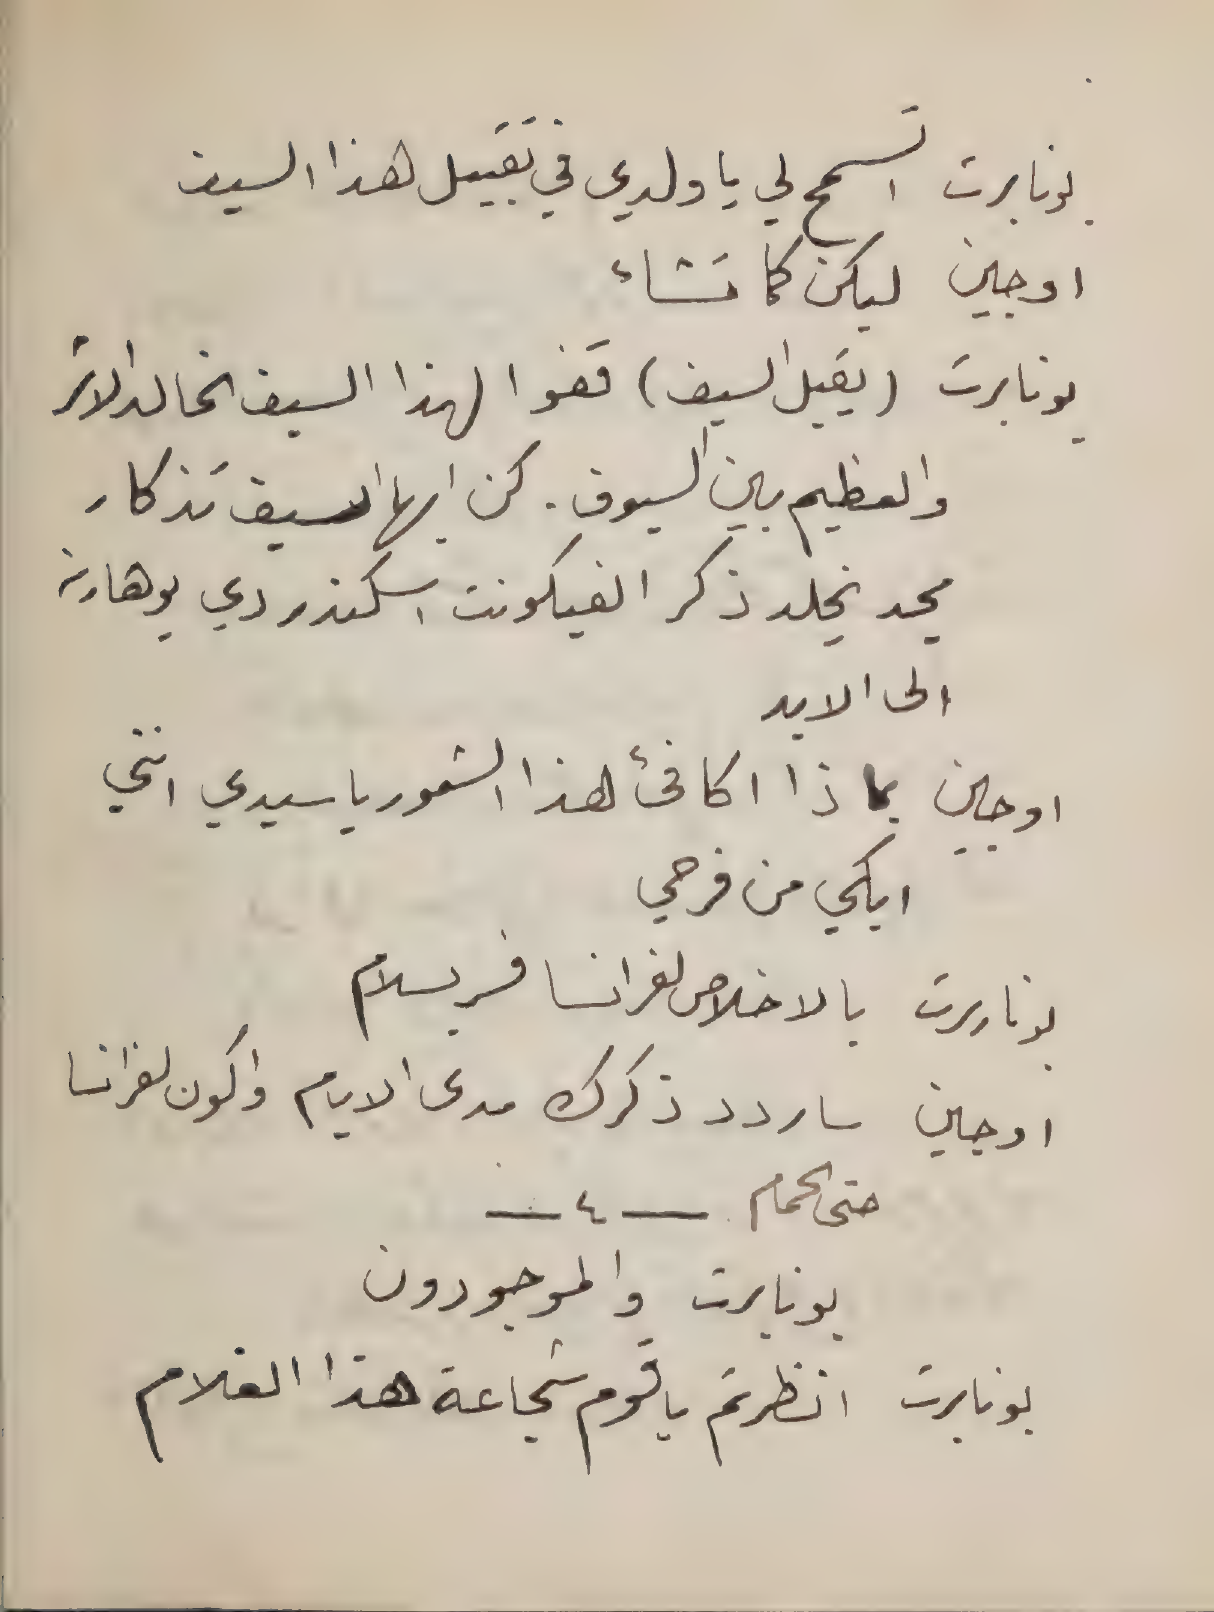 بونابرت اتسمح لي يا ولدي في تقبيل هذا السيف
اوجين ليكن كما تشاء
بونابرت (يقبل السيف) قفوا لهذا السيف الخالد الاثر
والعظيم بين السيوف. كن ايها السيف تذكار
مجد يخلد ذكر الفيكونت اسكندر دي بوهارنه
الى الابد
اوجين بماذا اكافئ هذا الشعور يا سيدي انني
ابكي من فرحي
بونابرت بالاخلاص لفرانسا فسر بسلام
اوجين ساردد ذكرك مدى الايام واكون لفرانسا
حتى الحمام — ٤ —
بونابرت والموجودون
بونابرت انظرتم يا قوم شجاعة هذا الغلام